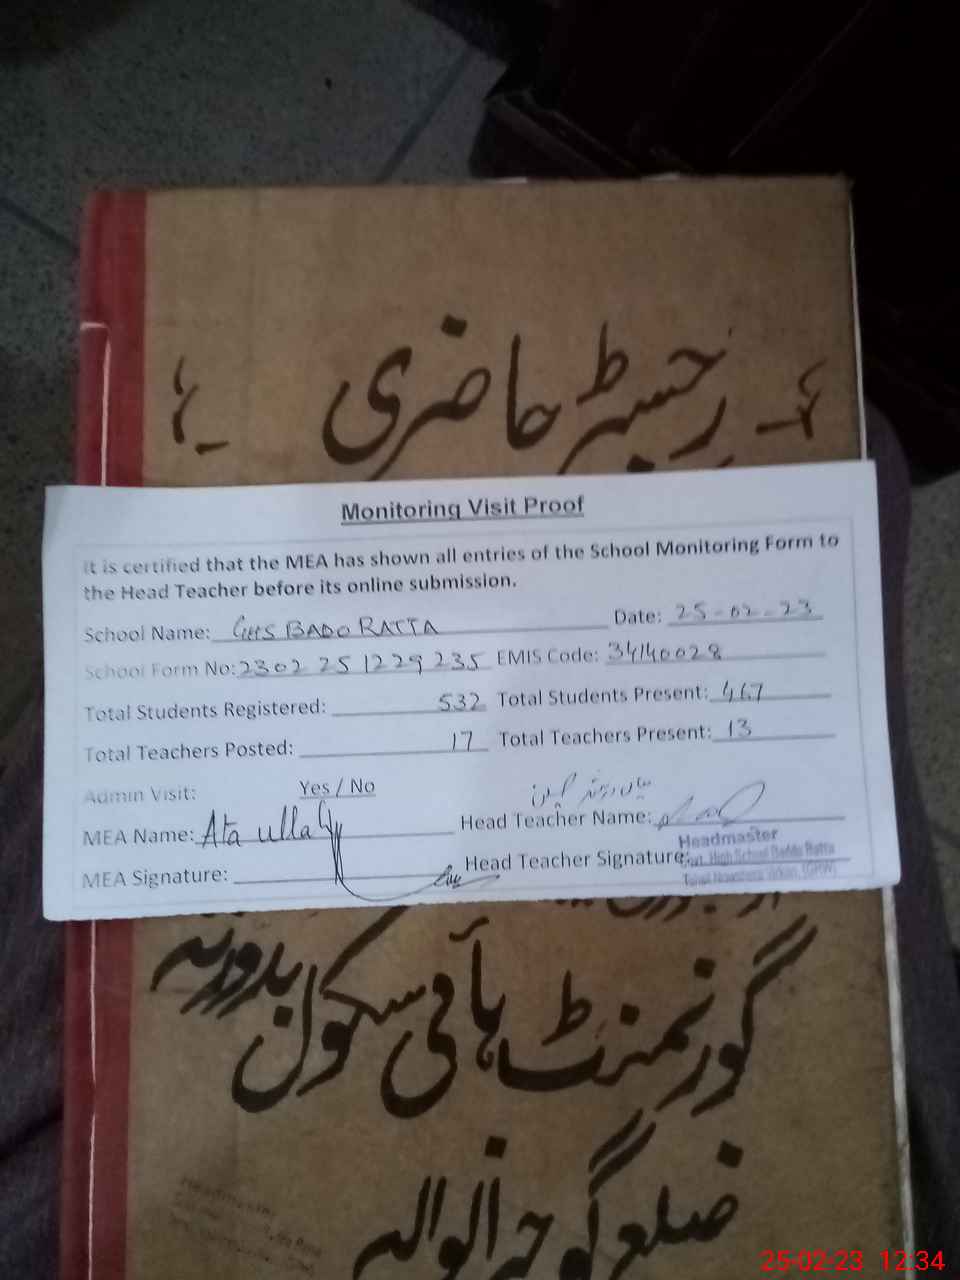 رجسٹر حاضری
Monitoring Visit Proof
It is certified that the MEA has shown all entries of the School Monitoring Form to
the Head Teacher before its online submission.
School Name: GHS BADO RATTA Date: 25-02-23
School Form No: 2302 251229235 EMIS Code: 34140028
Total Students Registered: 532 Total Students Present: 467
Total Teachers Posted: 17 Total Teachers Present: 13
Admin Visit: Yes / No
MEA Name: Ata ullah Head Teacher Name:
Headmaster
MEA Signature: Head Teacher Signature:
Govt. High School Baddo Ratta
Tehsil Nowshera Virkan, (GRW)
گورنمنٹ ہائی سکول بدورتہ
ضلع گوجرانوالہ
Headmaster
25-02-23 12:34